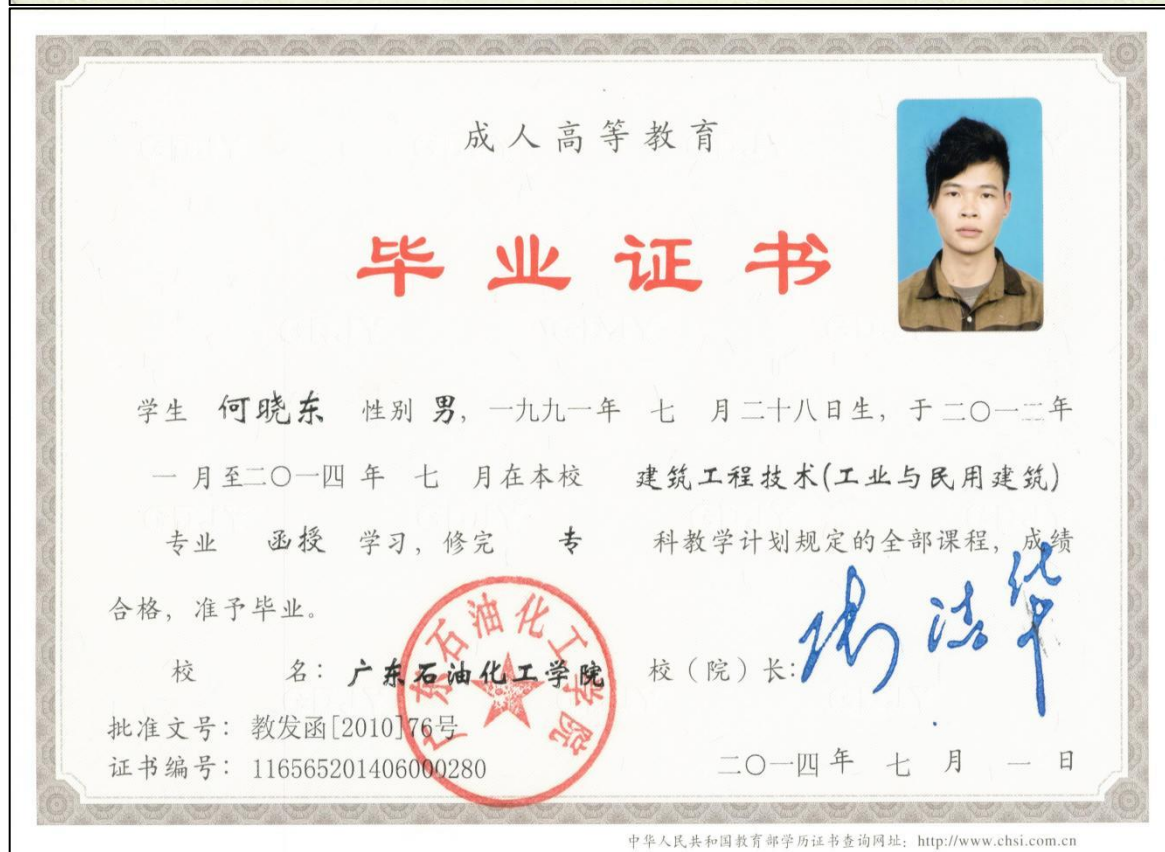 成人高等教育
毕业证书
学生 何晓东 性别 男, 一九九一年 七 月二十八日生, 于二〇一二年
一 月至二〇一四 年 七 月在本校 建筑工程技术(工业与民用建筑)
专业 函授 学习, 修完 专 科教学计划规定的全部课程, 成绩
合格, 准予毕业。
校 名: 广东石油化工学院 校（院）长:
广东石油化工学院
批准文号: 教发函[2010]76号
证书编号: 116565201406000280 二〇一四 年 七 月 一 日
中华人民共和国教育部学历证书查询网址: http://www.chsi.com.cn